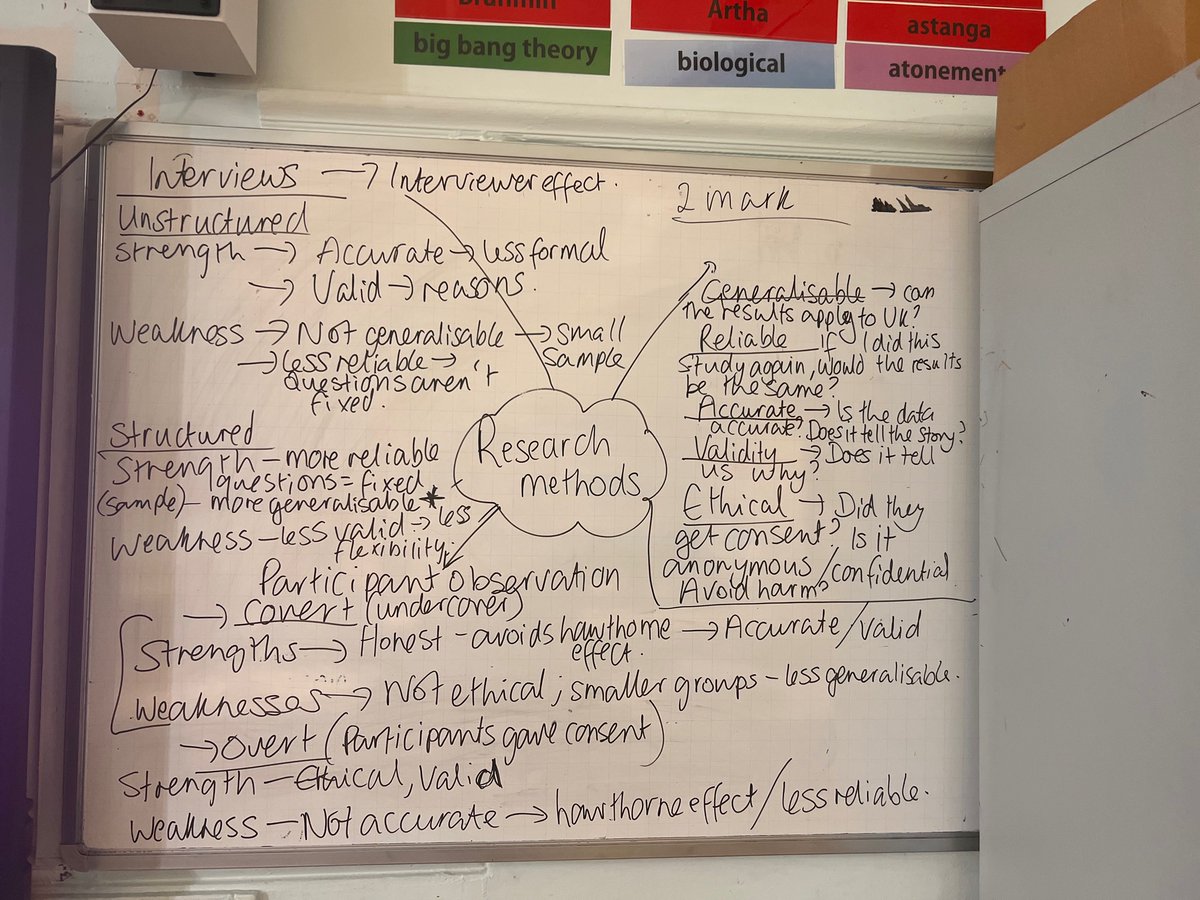 Brahmin
Artha
astanga
big bang theory
biological
atonement
Interviews → Interviewer effect.
Unstructured
Strength → Accurate → less formal
→ Valid → reasons.
Weakness → Not generalisable → small
sample
→ less reliable →
questions aren't
fixed.
Structured
Strength - more reliable
questions = fixed
(sample) - more generalisable *
Weakness - less valid → less
flexibility.
Research
methods
2 mark
Generalisable → can
the results apply to UK?
Reliable if I did this
study again, would the results
be the same?
Accurate → Is the data
accurate? Does it tell the story?
Validity → Does it tell
us why?
Ethical → Did they
get consent? Is it
anonymous / confidential.
Avoid harm?
Participant observation
→ covert (undercover)
Strengths → Honest - avoids hawthorne → Accurate / valid
effect.
Weaknesses → Not ethical; smaller groups - less generalisable.
→ overt (Participants gave consent)
Strength - Ethical, valid
Weakness - Not accurate → hawthorne effect / less reliable.